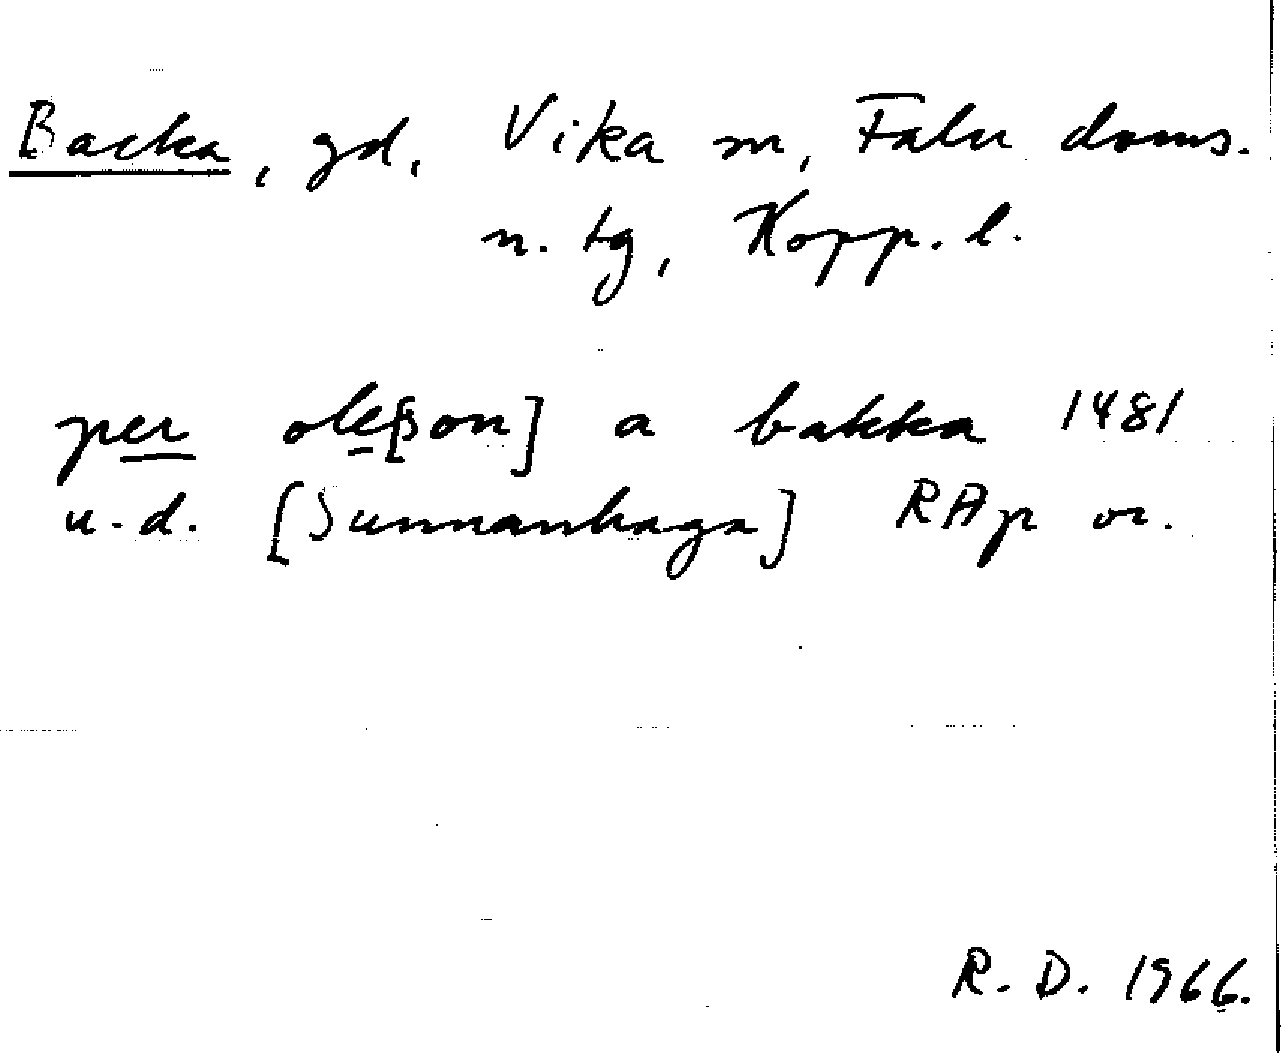 Backa, gd, Vika sn, Falu doms.
n. tg, Kopp. l.
per ole[son] a bakka 1481
u.d. [Sunnanhaga] RAp or.
R. D. 1966.